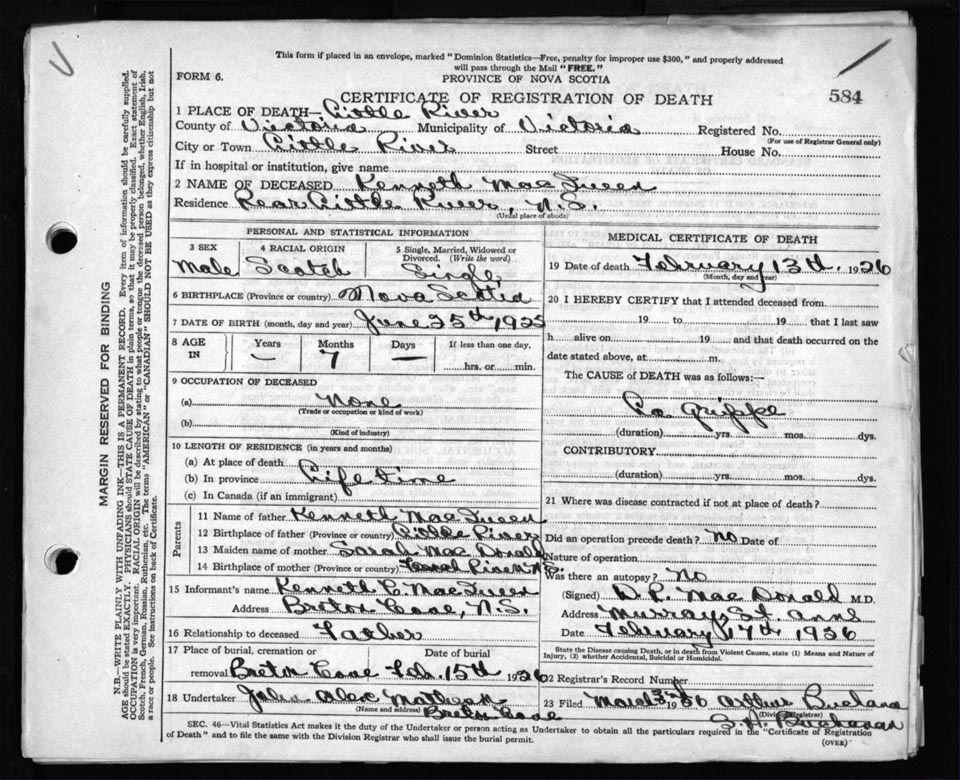 This form if placed in an envelope, marked "Dominion Statistics—Free, penalty for improper use $300," and properly addressed
will pass through the Mail "FREE."
FORM 6.
PROVINCE OF NOVA SCOTIA
CERTIFICATE OF REGISTRATION OF DEATH
584
1 PLACE OF DEATH— Little River
County of Victoria Municipality of Victoria Registered No.
(For use of Registrar General only)
City or Town Little River Street House No.
If in hospital or institution, give name
2 NAME OF DECEASED Kenneth MacQueen
Residence Rear Little River, N.S.
(Usual place of abode)
PERSONAL AND STATISTICAL INFORMATION
3 SEX 4 RACIAL ORIGIN 5 Single, Married, Widowed or Divorced. (Write the word)
Male Scotch Single
6 BIRTHPLACE (Province or country) Nova Scotia
7 DATE OF BIRTH (month, day and year) June 25th 1925
8 AGE IN Years Months Days If less than one day,
— 7 — hrs. or min.
9 OCCUPATION OF DECEASED
(a) None
(Trade or occupation or kind of work)
(b)
(Kind of industry)
10 LENGTH OF RESIDENCE (in years and months)
(a) At place of death
(b) In province Life time
(c) In Canada (if an immigrant)
Parents
11 Name of father Kenneth MacQueen
12 Birthplace of father (Province or country) Little River
13 Maiden name of mother Sarah MacDonald
14 Birthplace of mother (Province or country) N.S.
15 Informant's name Kenneth C. MacQueen
Address Breton Cove, N.S.
16 Relationship to deceased Father
17 Place of burial, cremation or Date of burial
removal Breton Cove Feb. 15th 1926
18 Undertaker John Alex
(Name and address) Breton Cove
MEDICAL CERTIFICATE OF DEATH
19 Date of death February 13th 1926
(Month, day and year)
20 I HEREBY CERTIFY that I attended deceased from
19 to 19 that I last saw
h alive on 19 and that death occurred on the
date stated above, at m.
The CAUSE of DEATH was as follows:—
La Grippe
(duration) yrs. mos. dys.
CONTRIBUTORY
(duration) yrs. mos. dys.
21 Where was disease contracted if not at place of death?
Did an operation precede death? No Date of
Nature of operation
Was there an autopsy? No
(Signed) MacDonald M.D.
Address Murray St. Anns
Date February 17th 1926
State the Disease causing Death, or in death from Violent Causes, state (1) Means and Nature of
Injury, (2) whether Accidental, Suicidal or Homicidal.
22 Registrar's Record Number
23 Filed March 3rd
(Division Registrar)
S. A. Buchanan
SEC. 46—Vital Statistics Act makes it the duty of the Undertaker or person acting as Undertaker to obtain all the particulars required in the "Certificate of Registration
of Death" and to file the same with the Division Registrar who shall issue the burial permit.
(OVER)
MARGIN RESERVED FOR BINDING
N.B.—WRITE PLAINLY WITH UNFADING INK—THIS IS A PERMANENT RECORD. Every item of information should be carefully supplied.
AGE should be stated EXACTLY. PHYSICIANS should STATE CAUSE OF DEATH in plain terms, so that it may be properly classified. Exact statement of
OCCUPATION is very important. RACIAL ORIGIN will be described by stating to what people or tongue the deceased person belonged, whether English, Irish,
Scotch, French, German, Russian, Ruthenian, etc. The terms "AMERICAN" or "CANADIAN" SHOULD NOT BE USED as they express citizenship but not
a race or people. See instructions on back of Certificate.